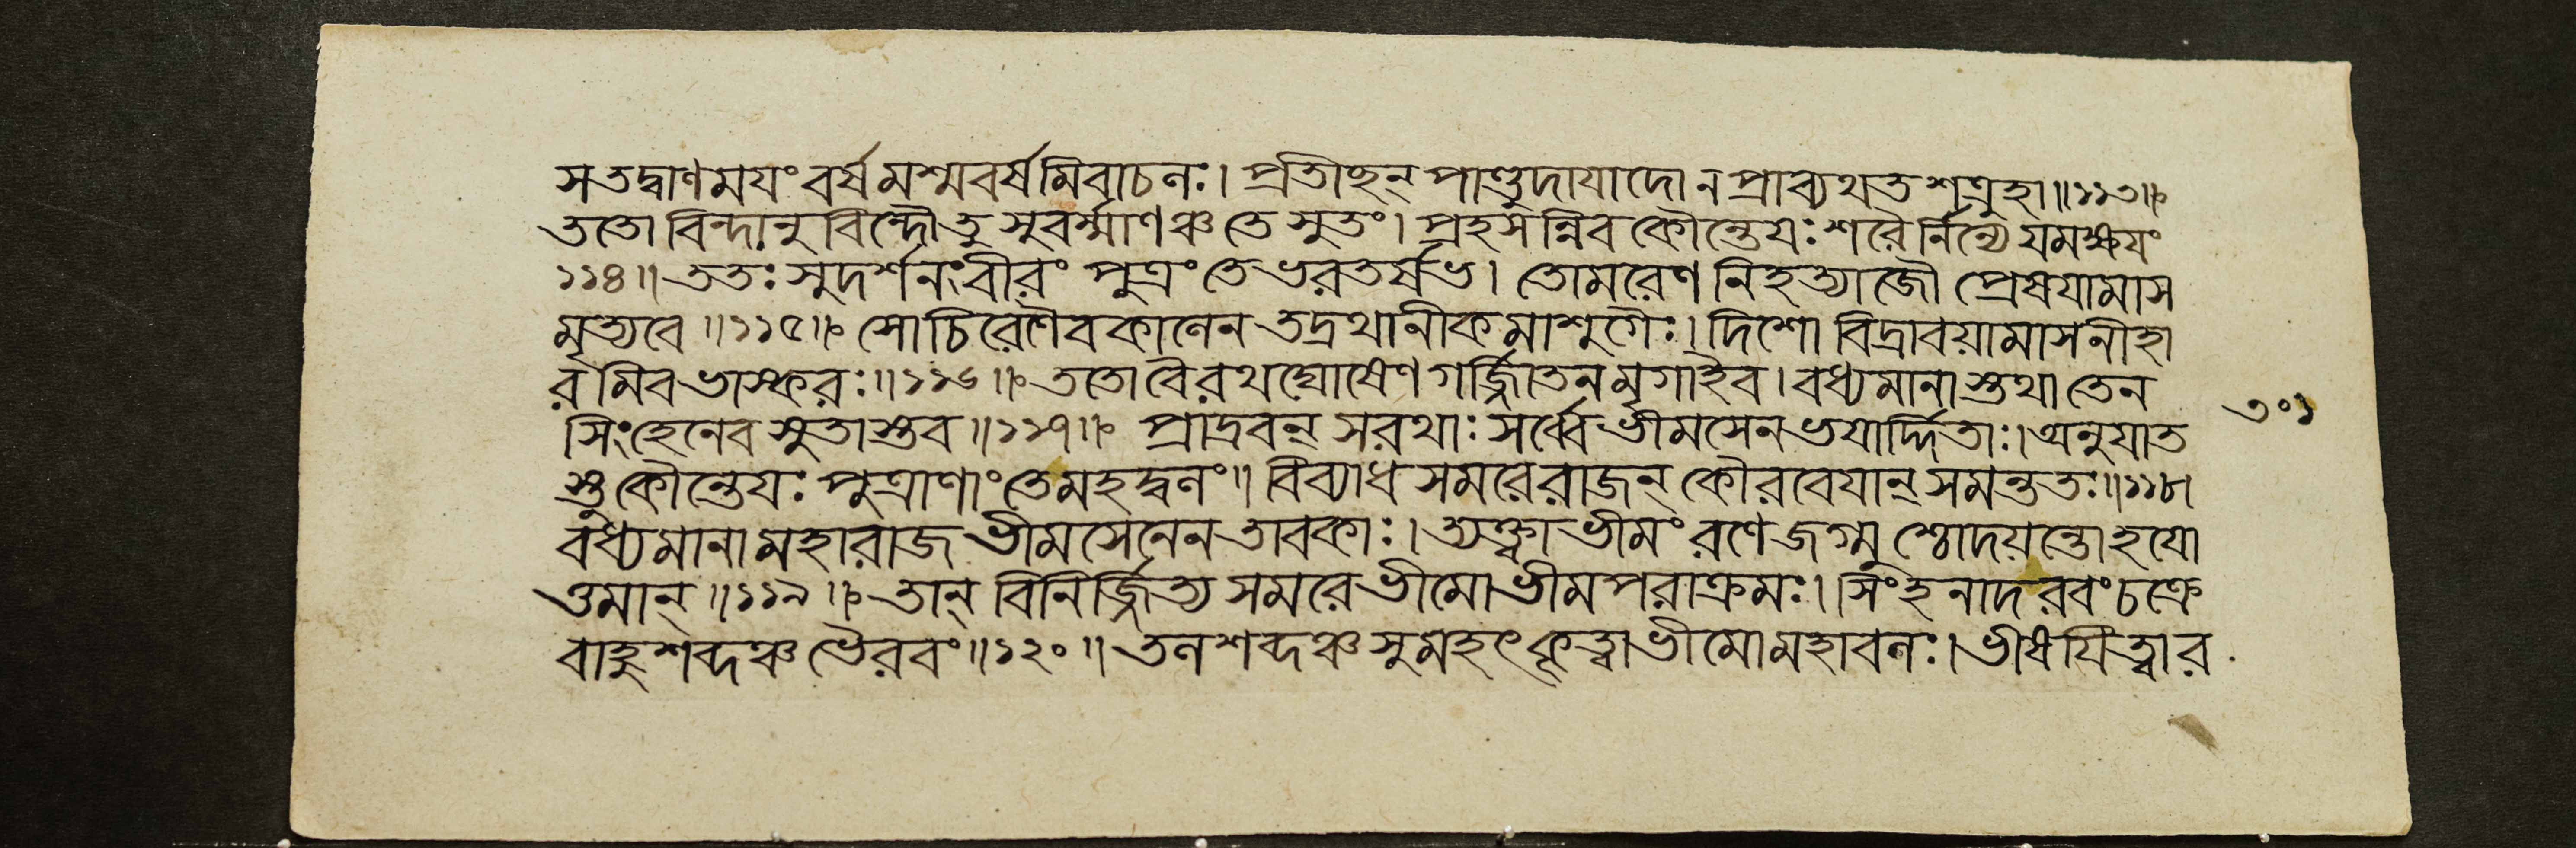 স তদ্বাণময়ং বর্ষমশ্মবর্ষমিবাচলঃ। প্রতীচ্ছন্ পাণ্ডুদায়াদো ন প্রাব্যথত শত্রুহা॥১১৩॥
ততো বিন্দানুবিন্দৌ তু সুবর্ম্মাণঞ্চ তে সুতং। প্রহসন্নিব কৌন্তেয়ঃ শরৈর্নিন্যে যমক্ষয়ং
১১৪॥ ততঃ সুদর্শনং বীরং পুত্রং তে ভরতর্ষভ। তোমরেণ নিহত্যাজৌ প্রেষয়ামাস
মৃত্যবে॥১১৫॥ সোচিরেণৈব কালেন তদ্রথানীকমাশুগৈঃ। দিশো বিদ্রাবয়ামাস নীহা
রমিব ভাস্করঃ॥১১৬॥ ততো বৈ রথঘোষেণ গর্জ্জিতেন মৃগা ইব। বধ্যমানাস্তথা তেন
সিংহেনেব সুতাস্তব॥১১৭॥ প্রাদ্রবন্ সরথাঃ সর্ব্বে ভীমসেনভয়ার্দ্দিতাঃ। অনুযাত
স্তু কৌন্তেয়ঃ পুত্রাণাং তে মহদ্বলং॥ বিব্যাধ সমরে রাজন্ কৌরবেয়ান্ সমন্ততঃ॥১১৮।
বধ্যমানা মহারাজ ভীমসেনেন তাবকাঃ। ত্যক্ত্বা ভীমং রণে জগ্মুশ্চোদয়ন্তো হয়ো
ত্তমান্॥১১৯॥ তান্ বিনির্জ্জিত্য সমরে ভীমো ভীমপরাক্রমঃ। সিংহনাদরবং চক্রে
বাহুশব্দঞ্চ ভৈরবং॥১২০॥ তলশব্দঞ্চ সুমহৎ কৃত্বা ভীমো মহাবলঃ। ভীষয়িত্বা র
৩০১